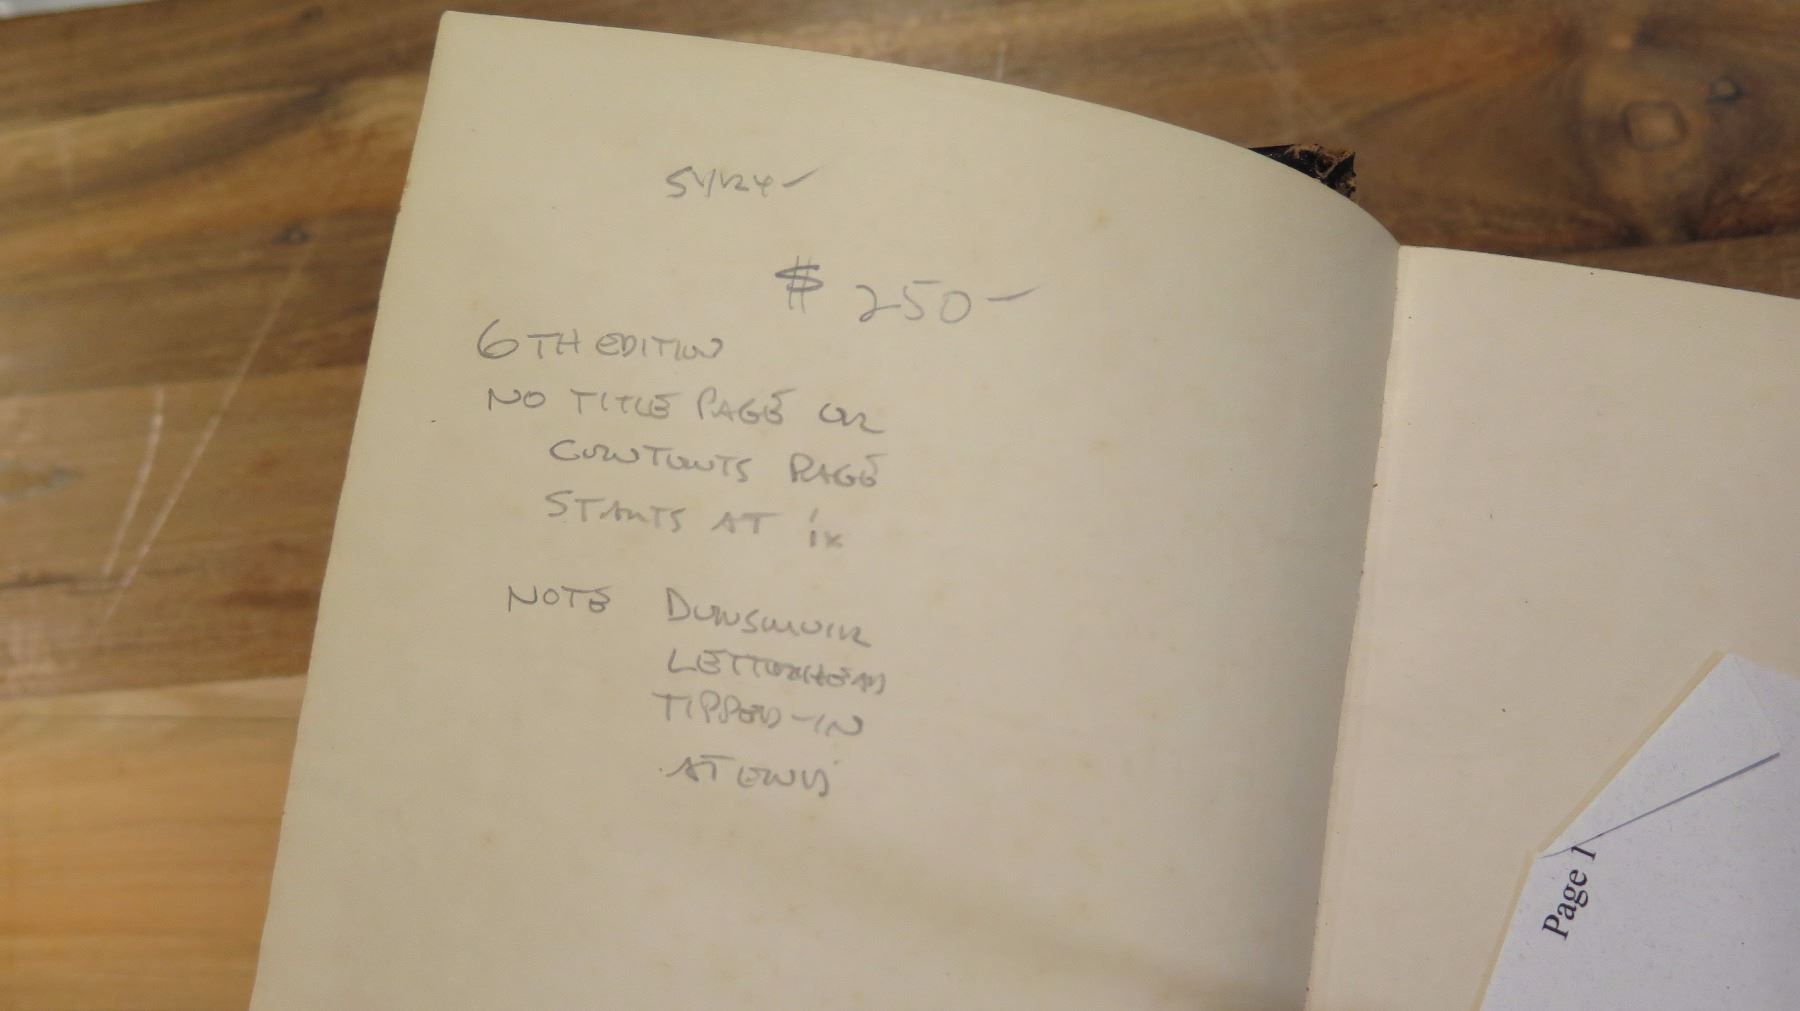 $ 250-
6TH EDITION
NO TITLE PAGE OR
CONTENTS PAGE
STARTS AT ix
NOTE DUNSMUIR
LETTERHEAD
TIPPED-IN
AT END
Page 1